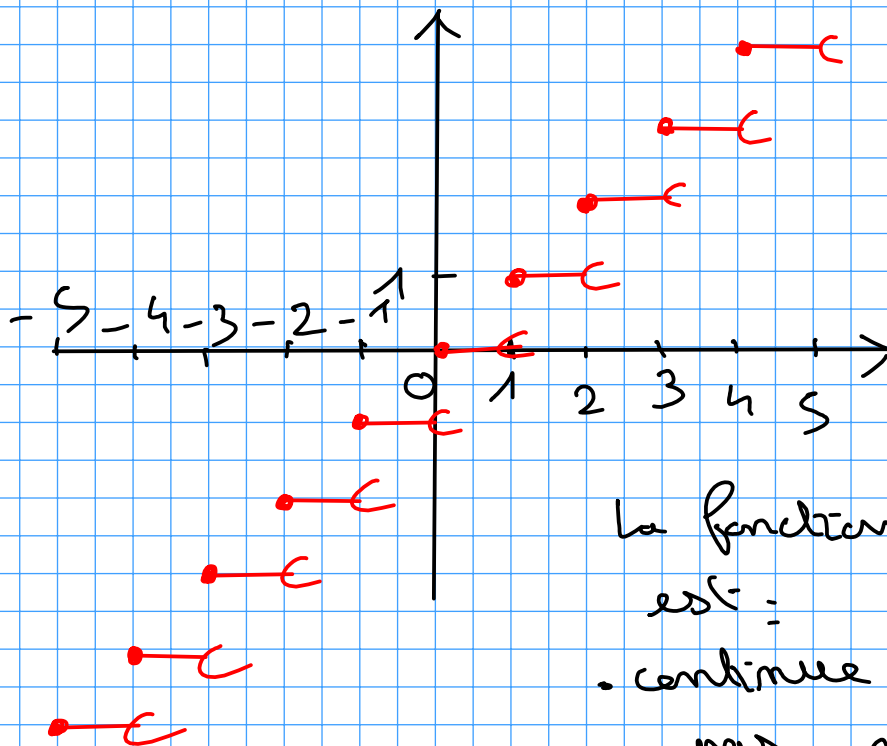 1
- 5 - 4 - 3 - 2 - 1
0 1 2 3 4 5
La fonction
est :
• continue